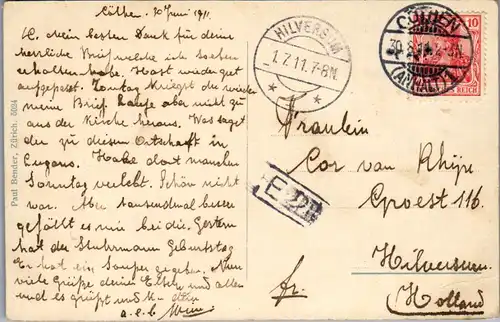 Cöthen, 30 Juni 1911.
L. Mein besten Dank für deine
herrliche Brief welche ich soeben
erholten habe. Hast wieder gut
aufgepasst. Sonntag kriegst du wieder
meine Brief, laufe aber nicht zu
aus der Kirche heraus. Was sagst
du zu diesem Ortschaft in
Lugano. Habe dort manchen
Sonntag verlebt. Schön nicht
war. Aber tausendmal besser
gefällt es mir bei die. Gestern
hat der Stuhrmann Geburtstag
Er hat ein Souper gegeben. Nun
viele Grüße deine Eltern und allen
und es grüßt und k- dein
a.e.b.
Paul Bender, Zürich. 5024
HILVERSUM
1.7.11. 7-8N.
CÖTHEN
(ANHALT) 1
10
REICH
Fräulein
Cor van Rhijn
Groest 116.
Hilversum
Holland
fr.